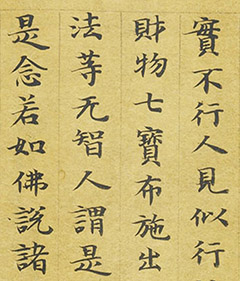 實不行人見似行
財物七寶布施出
法等无智人謂是
是念若如佛說諸